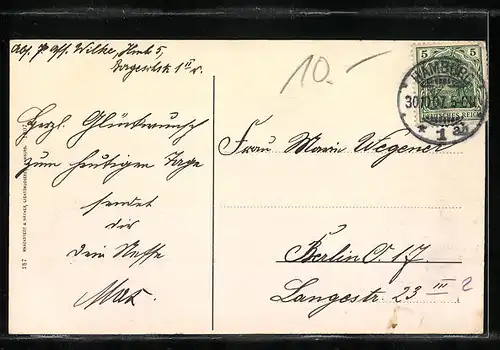 Wilke, Hmb 5,
10.-
5 5
HAMBURG
30.10.07. 5-6 N
* 1 *
DEUTSCHES REICH
Herzl. Glückwunsch
zum heutigen Tage
sendet
dir
Dein Neffe
Max.
Frau Marie Wegener
Berlin O. 17
Langestr. 23 III
2
187